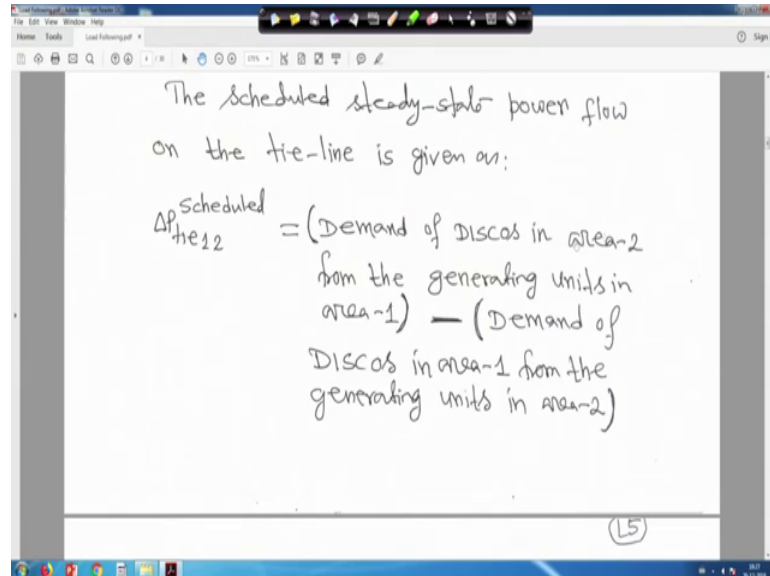 Load Following.pdf - Adobe Acrobat Reader DC
File Edit View Window Help
Home Tools Load Following.pdf × Sign
175%
The scheduled steady-state power flow
on the tie-line is given as:
ΔP tie12 scheduled = (Demand of DISCOS in area-2
from the generating units in
area-1) — (Demand of
DISCOS in area-1 from the
generating units in area-2)
L5